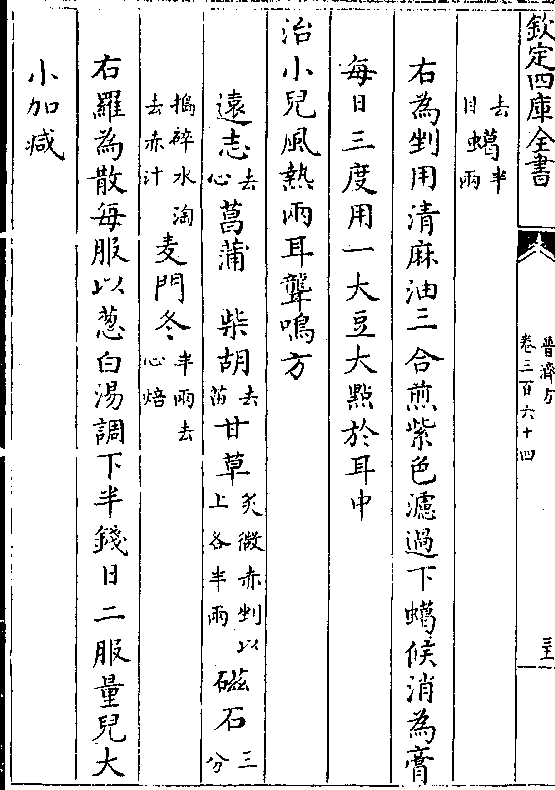 欽定四庫全書
普濟方
卷三百六十四
去
蠟半
目
兩
右為剉用清麻油三合煎紫色濾過下蠟候消為膏
每日三度用一大豆大點於耳中
治小兒風熱兩耳聾鳴方
遠志去心菖蒲 柴胡去苗甘草炙微赤剉以上各半兩磁石三分
搗碎水淘去赤汁麦門冬半兩去心焙
右羅為散每服以葱白湯調下半錢日二服量兒大
小加减